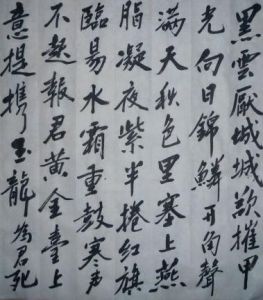 黑雲厭城城欲摧甲
光向日錦鱗開角聲
滿天秋色里塞上燕
脂凝夜紫半捲紅旗
臨易水霜重鼓寒声
不起報君黃金臺上
意提携玉龍為君死